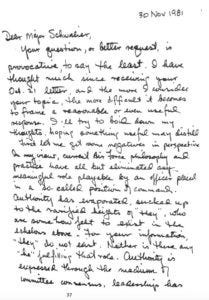 30 Nov 1981
Dear Major Schwalier,
Your question, or better request, is
provocative to say the least. I have
thought much since receiving your
Oct. 21 letter, and the more I consider
your topic, the more difficult it becomes
to frame a reasonable or even useful
response. I'll try to boil down my
thoughts, hoping something useful may distill
First let me get some negatives in perspective
In my view, current Air Force philosophy and
practice have all but eliminated any
meaningful role playable by an officer placed
in a so-called position of command.
Authority has evaporated, sucked up
to the rarified heights of "they" who
are somehow felt to exist in the
echelons above. For your information,
"they" do not exist. Neither is there any
"he" fulfilling that role. Authority is
expressed through the medium of
committee consensus, leadership has
37